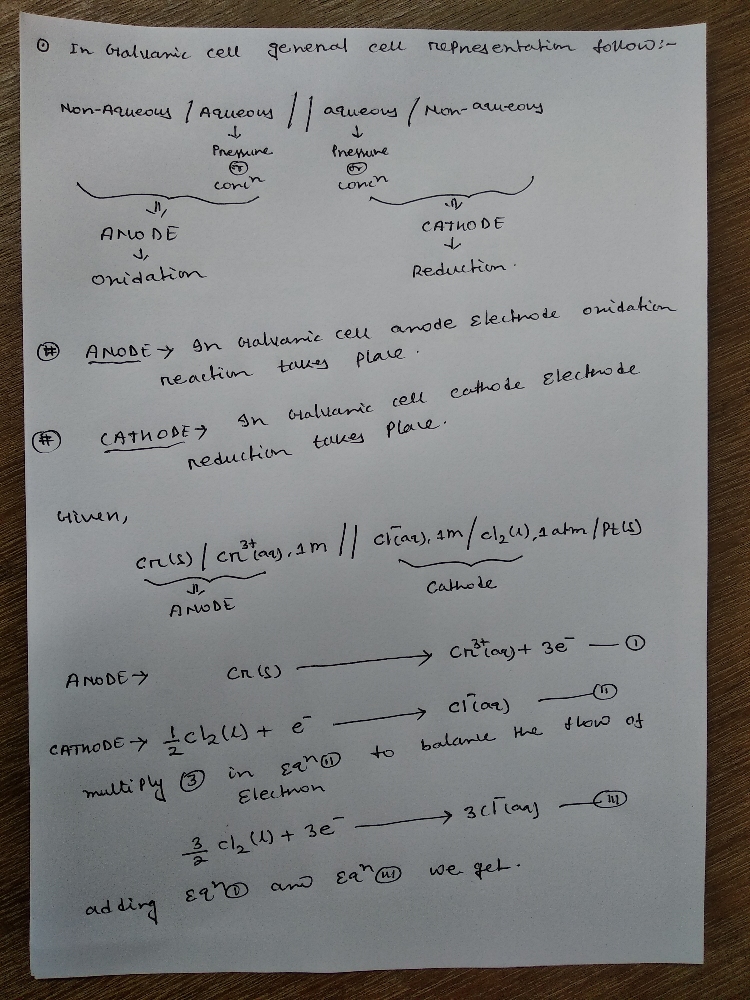 ⊙ In Galvanic cell general cell representation follow:-
Non-Aqueous / Aqueous // aqueous / Non-aqueous
↓ ↓
Pressure Pressure
or or
concn concn
⇓ ⇓
ANODE CATHODE
↓ ↓
Oxidation Reduction.
# ANODE → In Galvanic cell anode Electrode oxidation
reaction takes place.
# CATHODE → In Galvanic cell cathode Electrode
reduction takes place.
Given,
Cr(s) / Cr³⁺(aq), 1m // Cl⁻(aq), 1m / Cl₂(l), 1 atm / Pt(s)
⇓
ANODE Cathode
ANODE → Cr(s) ⟶ Cr³⁺(aq) + 3e⁻ — (I)
CATHODE → 1/2 Cl₂(l) + e⁻ ⟶ Cl⁻(aq) — (II)
multiply (3) in Eqn (II) to balance the flow of
Electron
3/2 Cl₂(l) + 3e⁻ ⟶ 3Cl⁻(aq) — (III)
adding Eqn (I) and Eqn (III) we get.